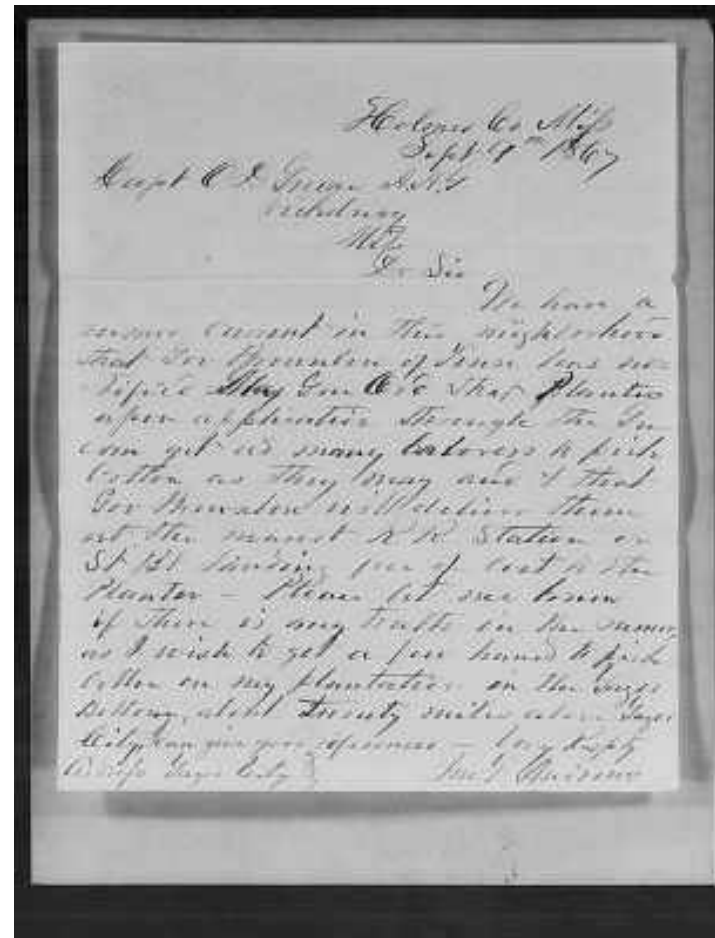 Holmes Co Miss
Sept 9th 1867
Capt O D Greene A A G
Vicksburg
Miss
Dr Sir
We have a
rumor current in this neighborhood
that Gov Brownlow of Tenn has no-
tified Maj Gen Ord that Planters
upon application through the Gen
can get as many laborers to pick
Cotton as they may and that
Gov Brownlow will deliver them
at the nearest R R Station or
St Bt Landing free of cost to the
Planter — Please let me know
if there is any truth in the rumor,
as I wish to get a few hands to pick
Cotton on my plantation on the Yazoo
about Twenty miles above Yazoo
City, can give good — Very Respty
Address Yazoo City